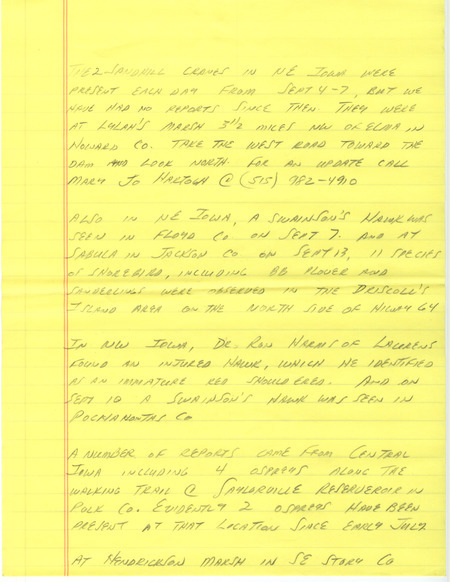 THE 2 SANDHILL CRANES IN NE IOWA WERE
PRESENT EACH DAY FROM SEPT 4-7, BUT WE
HAVE HAD NO REPORTS SINCE THEN. THEY WERE
AT LYLAH'S MARSH 3 1/2 MILES NW OF ELMA IN
HOWARD CO. TAKE THE WEST ROAD TOWARD THE
DAM AND LOOK NORTH. FOR AN UPDATE CALL
MARY JO HARTOGH @ (515) 982-4910
ALSO IN NE IOWA, A SWAINSON'S HAWK WAS
SEEN IN FLOYD CO ON SEPT 7. AND AT
SABULA IN JACKSON CO ON SEPT 13, 11 SPECIES
OF SHOREBIRD, INCLUDING BB PLOVER AND
SANDERLINGS WERE OBSERVED IN THE DRISCOLL'S
ISLAND AREA ON THE NORTH SIDE OF HIWAY 64
IN NW IOWA, DR. RON HARMS OF LAURENS
FOUND AN INJURED HAWK, WHICH HE IDENTIFIED
AS AN IMMATURE RED SHOULDERED. AND ON
SEPT 12 A SWAINSON'S HAWK WAS SEEN IN
POCHAHONTAS CO
A NUMBER OF REPORTS CAME FROM CENTRAL
IOWA INCLUDING 4 OSPREYS ALONG THE
WALKING TRAIL @ SAYLORVILLE RESERVEROIR IN
POLK CO. EVIDENTLY 2 OSPREYS HAVE BEEN
PRESENT AT THAT LOCATION SINCE EARLY JULY
AT HENDRICKSON MARSH IN SE STORY CO